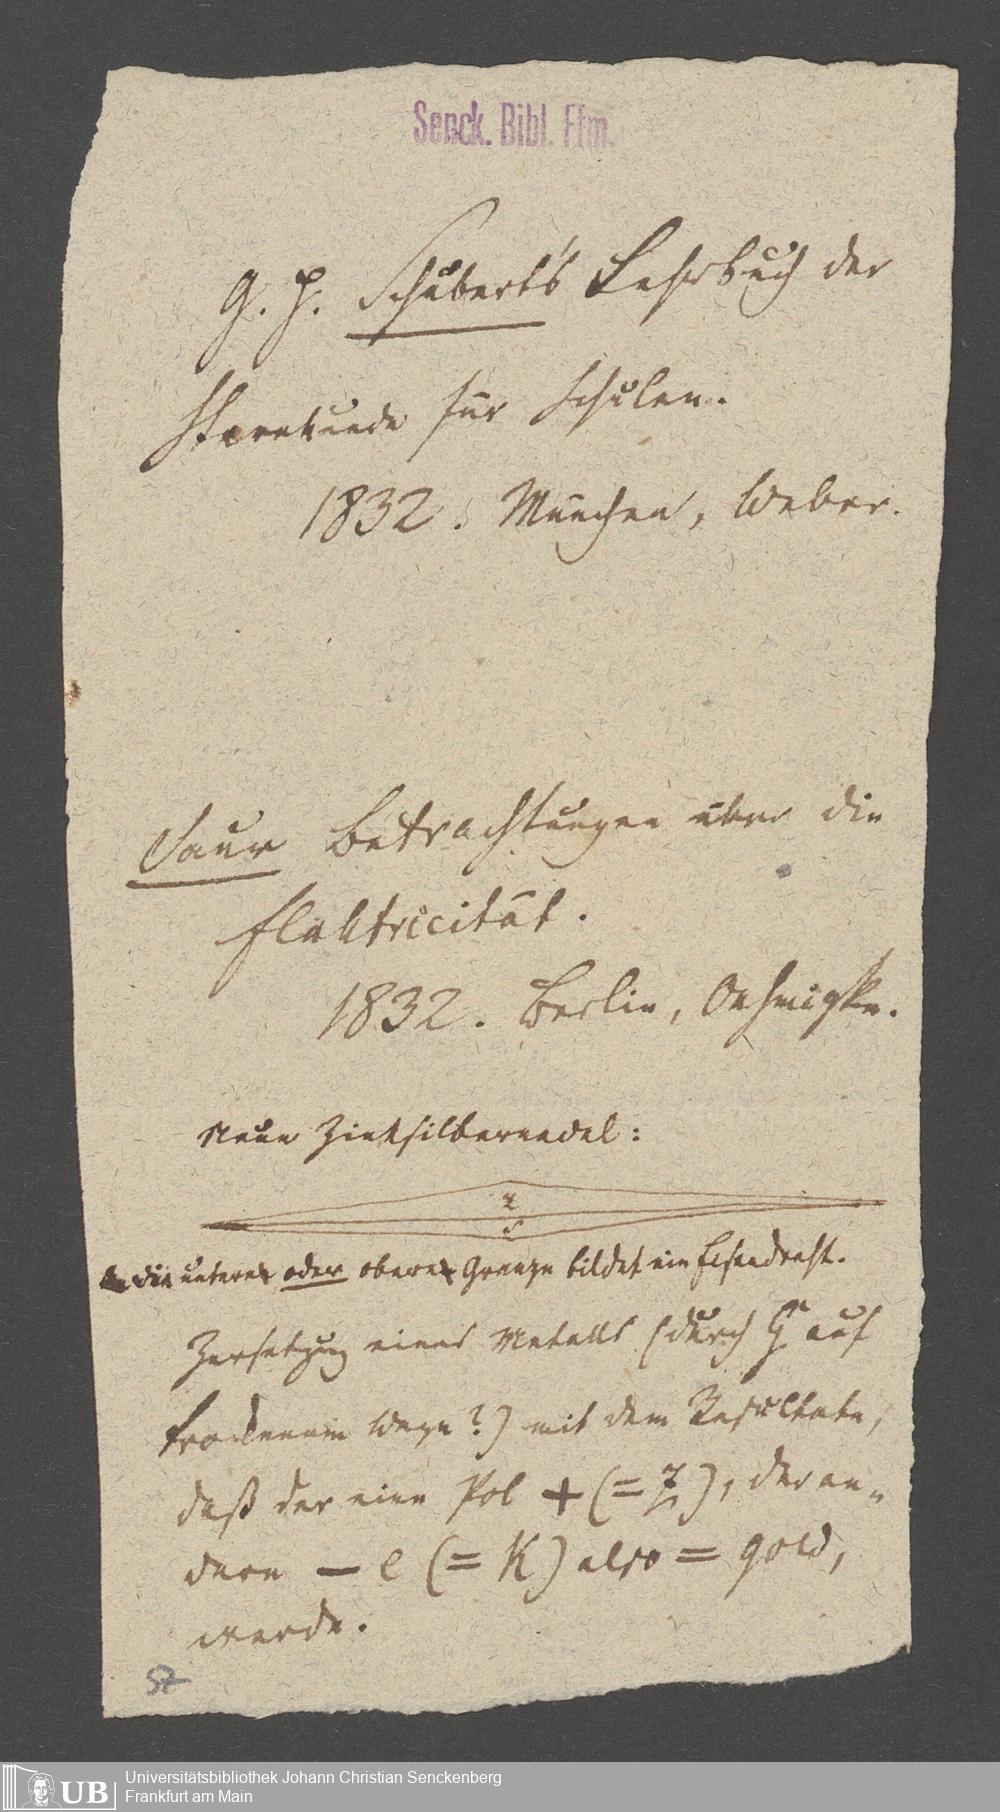 Senck. Bibl. Ffm.
G. H. Schubert's Lehrbuch der
Sternkunde für Schulen.
1832. München, Weber.
Saur Betrachtungen über die
Elektricität.
1832. Berlin, Oehmigke.
Neue Zinksilbernadel:
z
s
die untere oder obere Grenze bildet ein Eisendraht.
Zersetzung eines Metalls (durch auf
trockenem Wege?) mit dem Resultate,
daß der eine Pol + (= Z), der an-
dere – e (= K) also = Gold,
werde.
57
UB
Universitätsbibliothek Johann Christian Senckenberg
Frankfurt am Main